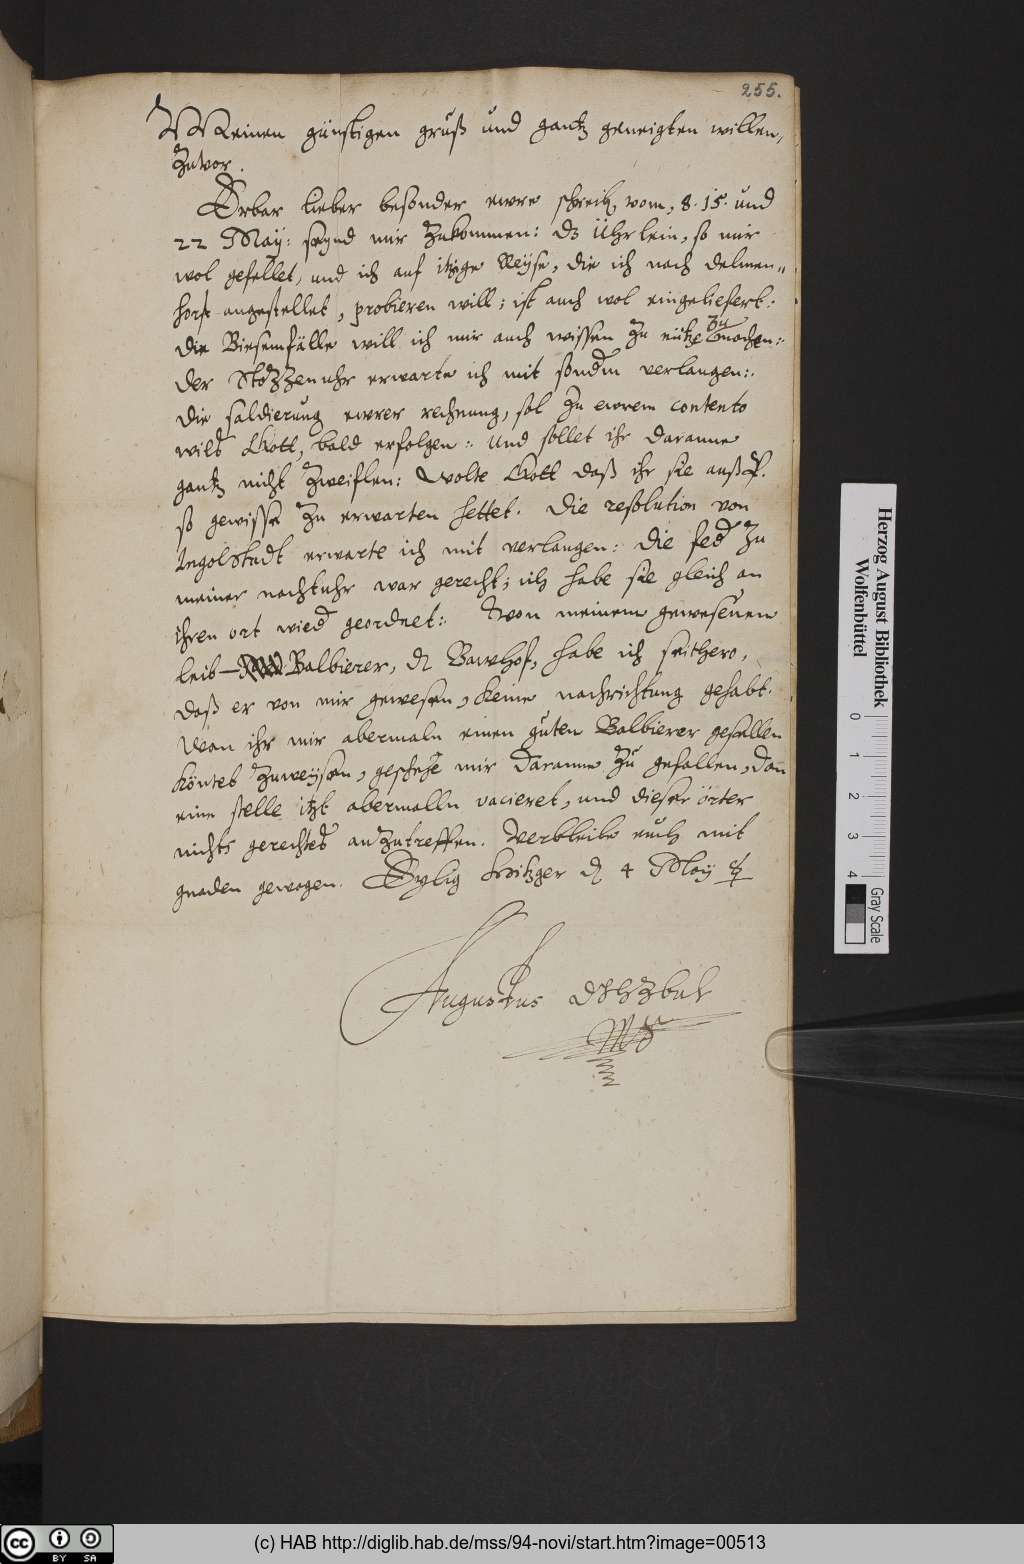 255.
Meinen günstigen gruß und gantz geneigten willen,
zuvor.
Erbar lieber besonder ewre schreib. vom, 8. 15. und
22 May: seynd mir zukommen: dz Uhrlein, so mir
wol gefellet, und ich auf itzige Reyse, die ich nach Delmen„
horst angestellet, probieren will; ist auch wol eingeliefert:
die Biesemfälle will ich mir auch wissen zu nütze zu machen:
der Stozzenuhr erwarte ich mit sondern verlangen:
die saldierung ewrer rechnung, sol zu ewrem contento
wils Gott, bald erfolgen: und sollet ihr daranne
gantz nicht zweiflen: Wolte Gott daß ihr sie auß
so gewisse zu erwarten hettet. Die resolution von
Ingolstadt erwarte ich mit verlangen: die fed zu
meiner nachtuhr war gerecht; ich habe sie gleich an
ihren ort wied geordnet: Von meinem gewesenen
leib- Balbierer, Bawhof, habe ich seithero,
daß er von mir gewesen, keine nachrichtung gehabt.
Wan ihr mir abermaln einen guten Balbierer gesellen
köntet zuweysen, geschehe mir daranne zu gefallen, dan
eine stelle itzt abermalln vacieret, und dieser örter
nichts gerechtes anzutreffen. Verbleibe euch mit
gnaden gewogen. Eylig Hitzger d 4 May
Augustus
Herzog August Bibliothek
Wolfenbüttel
0 1 2 3 4
Gray Scale
cc BY SA
(c) HAB http://diglib.hab.de/mss/94-novi/start.htm?image=00513